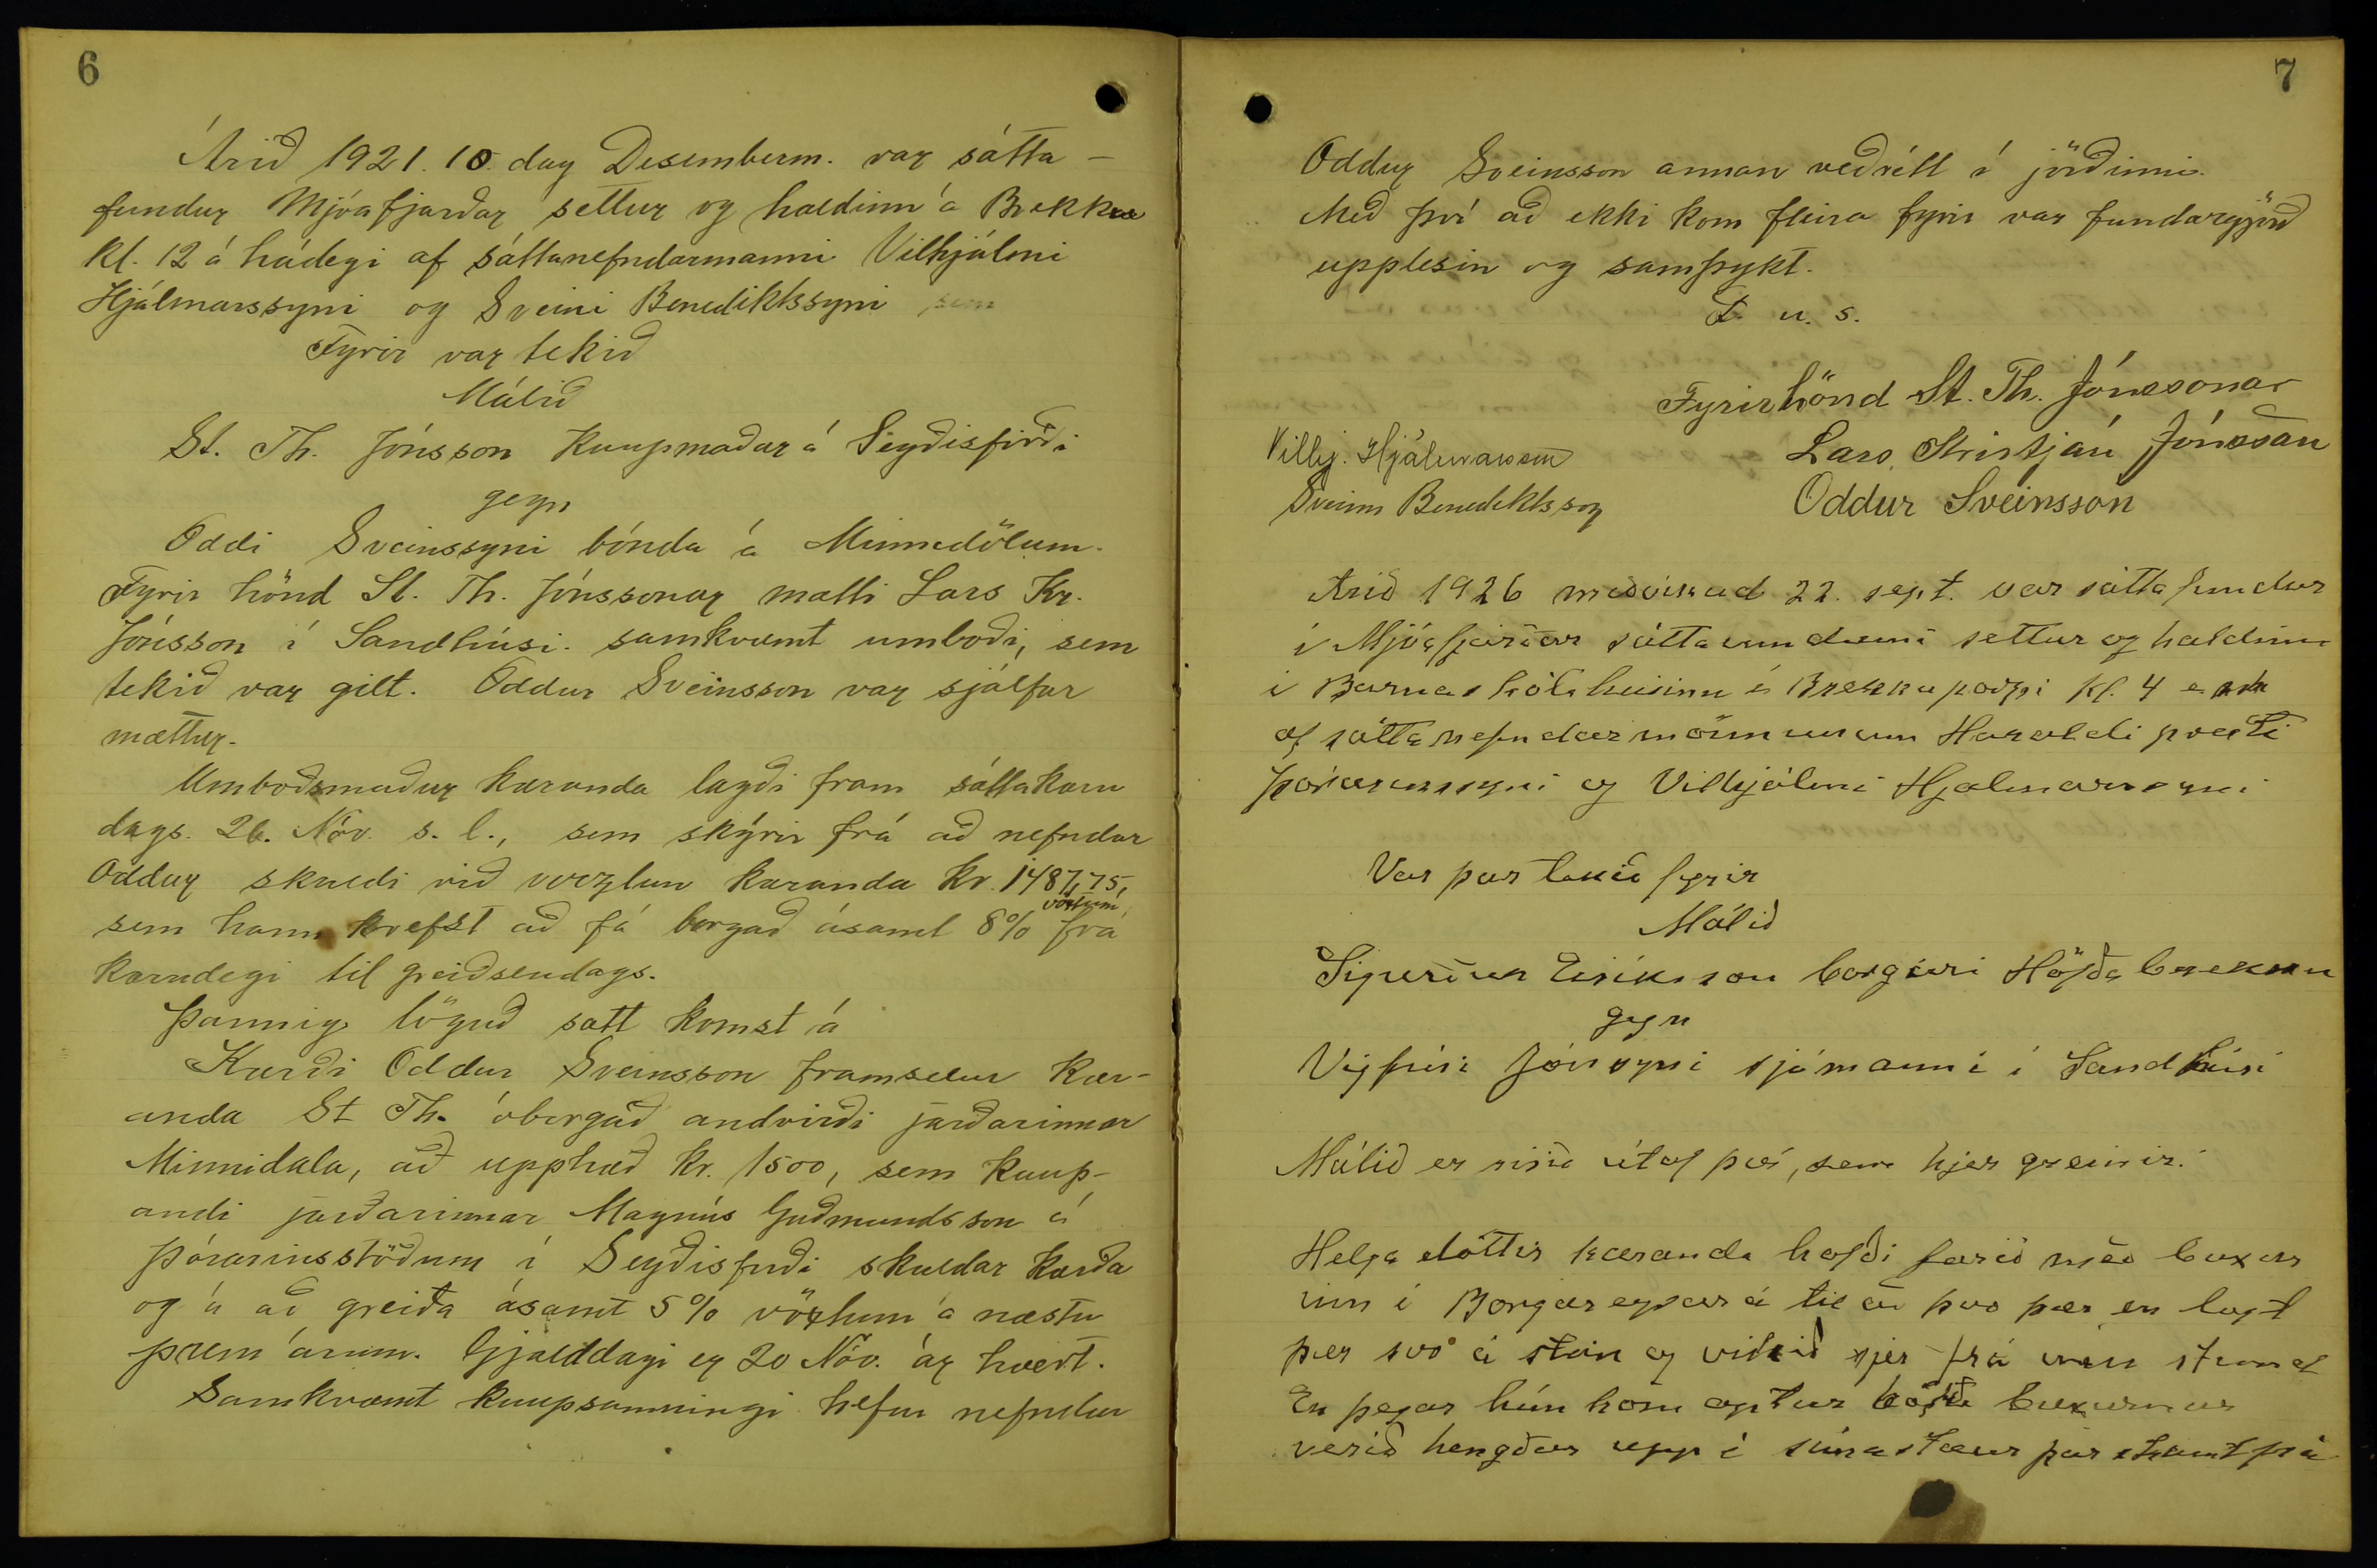 6
Árið 1921. 10. dag Desemberm. var sátta-
fundur Mjóafjarðar settur og haldinn á Brekku
kl. 12 á hádegi af sáttanefndarmanni Vilhjálmi
Hjálmarssyni og Sveini Benediktssyni sem
Fyrir var tekið
Málið
St. Th. Jónsson Kaupmaður á Seyðisfirði
gegn
Oddi Sveinssyni bónda á Minnidölum.
Fyrir hönd St. Th. Jónssonar mætti Lars Kr.
Jónsson í Sandhúsi. samkvæmt umboði, sem
tekið var gilt. Oddur Sveinsson var sjálfur
mættur.
Umboðsmaður kæranda lagði fram sáttakæru
dags. 26. Nóv. s. l., sem skýrir frá að nefndur
Oddur skuldi við verzlun kæranda kr. 1487,75,
vöxtum
sem hann krefst að fá borgað ásamt 8% frá
kærudegi til greiðsludags.
Þannig löguð sátt komst á
Kærði Oddur Sveinsson framselur kær-
anda St Th. óborgað andvirði jarðarinnar
Minnidala, að upphæð kr. 1500, sem kaup-
andi jarðarinnar Magnús Guðmundsson á
Þórarinsstöðum í Seyðisfirði skuldar kærða
og á að greiða ásamt 5% vöxtum á næstu
þrem árum. Gjalddagi er 20 Nóv. ár hvert.
Samkvæmt kaupsamningi hefur nefndur
7
Oddur Sveinsson annan veðrétt í jörðinni.
Með því að ekki kom fleira fyrir var fundargjörð
upplesin og samþykt.
F. u. s.
Fyrir hönd St. Th. Jónssonar
Vilhj. Hjálmarsson Lars Kristján Jónsson
Sveinn Benediktsson Oddur Sveinsson
Árið 1926 miðvikud 22. sept. var sáttafundur
í Mjóafjarðar sáttaumdæmi settur og haldinn
í Barnaskólahúsinu á Brekkuþorpi kl. 4 e
af sáttanefndarmönnunum Haraldi presti
Þórarinssyni og Vilhjálmi Hjalmarssyni
Var þar tekið fyrir
Málið
Sigurður Eiríksson borgari Höfðabrekku
gegn
Vigfúsi Jónssyni sjómanni í Sandhúsi
Málið er risið útaf því, sem hjer greinir.
Helga dóttir kæranda hafði farið með buxur
inn í Borgareyrará til að þvo þær en lagt
þær svo á stein og vikið sjer frá um stund
En þegar hún kom aptur höfðu buxurnar
verið hengdar upp í símastaur þar skamt frá